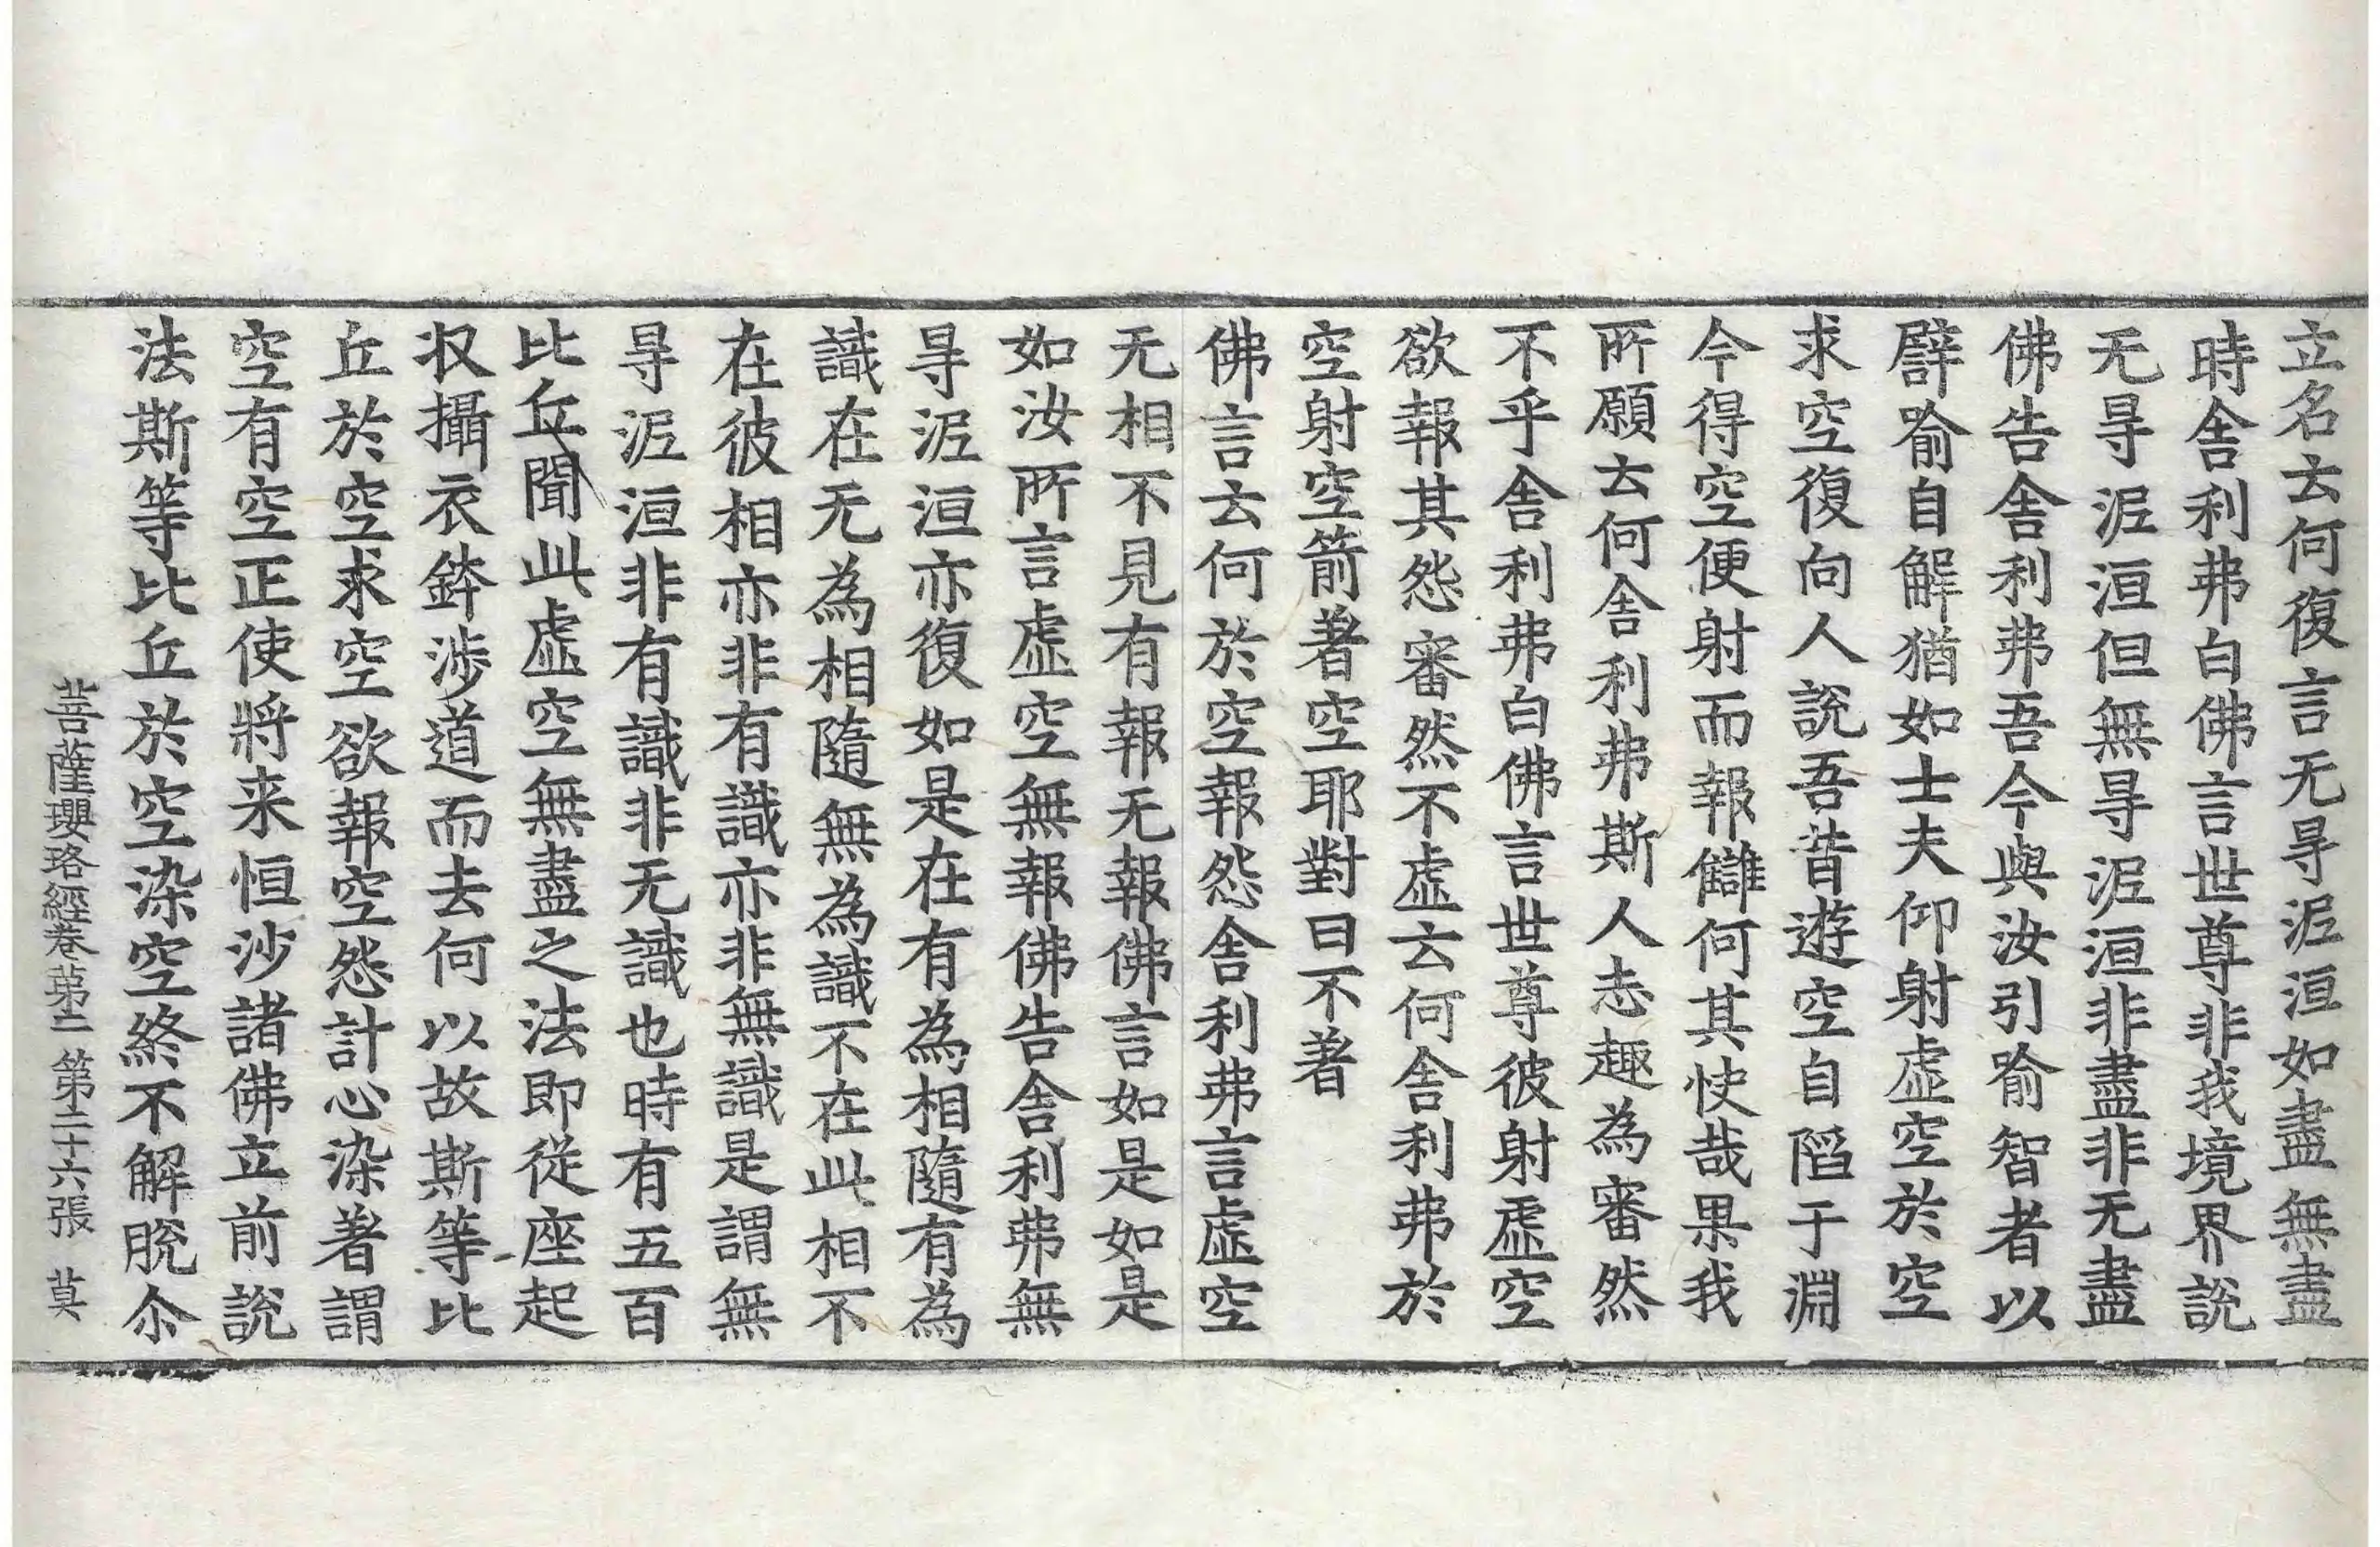 立名云何復言无㝵泥洹如盡無盡
時舍利弗白佛言世尊非我境界說
无㝵泥洹但無㝵泥洹非盡非无盡
佛告舍利弗吾今與汝引喻智者以
譬喻自解猶如士夫仰射虛空於空
求空復向人說吾昔遊空自陷于淵
今得空便射而報讎何其快哉果我
所願云何舍利弗斯人志趣為審然
不乎舍利弗白佛言世尊彼射虛空
欲報其怨審然不虛云何舍利弗於
空射空箭著空耶對曰不著
佛言云何於空報怨舍利弗言虛空
无相不見有報无報佛言如是如是
如汝所言虛空無報佛告舍利弗無
㝵泥洹亦復如是在有為相隨有為
識在无為相隨無為識不在此相不
在彼相亦非有識亦非無識是謂無
㝵泥洹非有識非无識也時有五百
比丘聞此虛空無盡之法即從座起
収攝衣鉢涉道而去何以故斯等比
丘於空求空欲報空怨計心染著謂
空有空正使將来恒沙諸佛立前說
法斯等比丘於空染空終不解脫尒
菩薩瓔珞經卷第二 第二十六張 莫